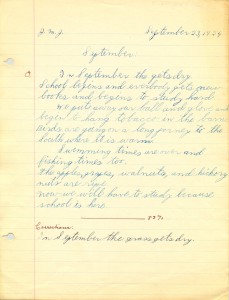 J.M.J. September 23, 1954
September
In September the gets dry.
School begins and everbody gets new
books and begins to study hard.
We put away our ball and glove and
begen to hang tobacco in the barn
Birds are going on a long jorney to the
South where it is warm.
Swimming times are over and
fishing times too.
The apples, grapes, walnuts, and hickory
nuts are ripe.
now we will have to study because
school is here.
Corrections:
In September the grass gets dry.